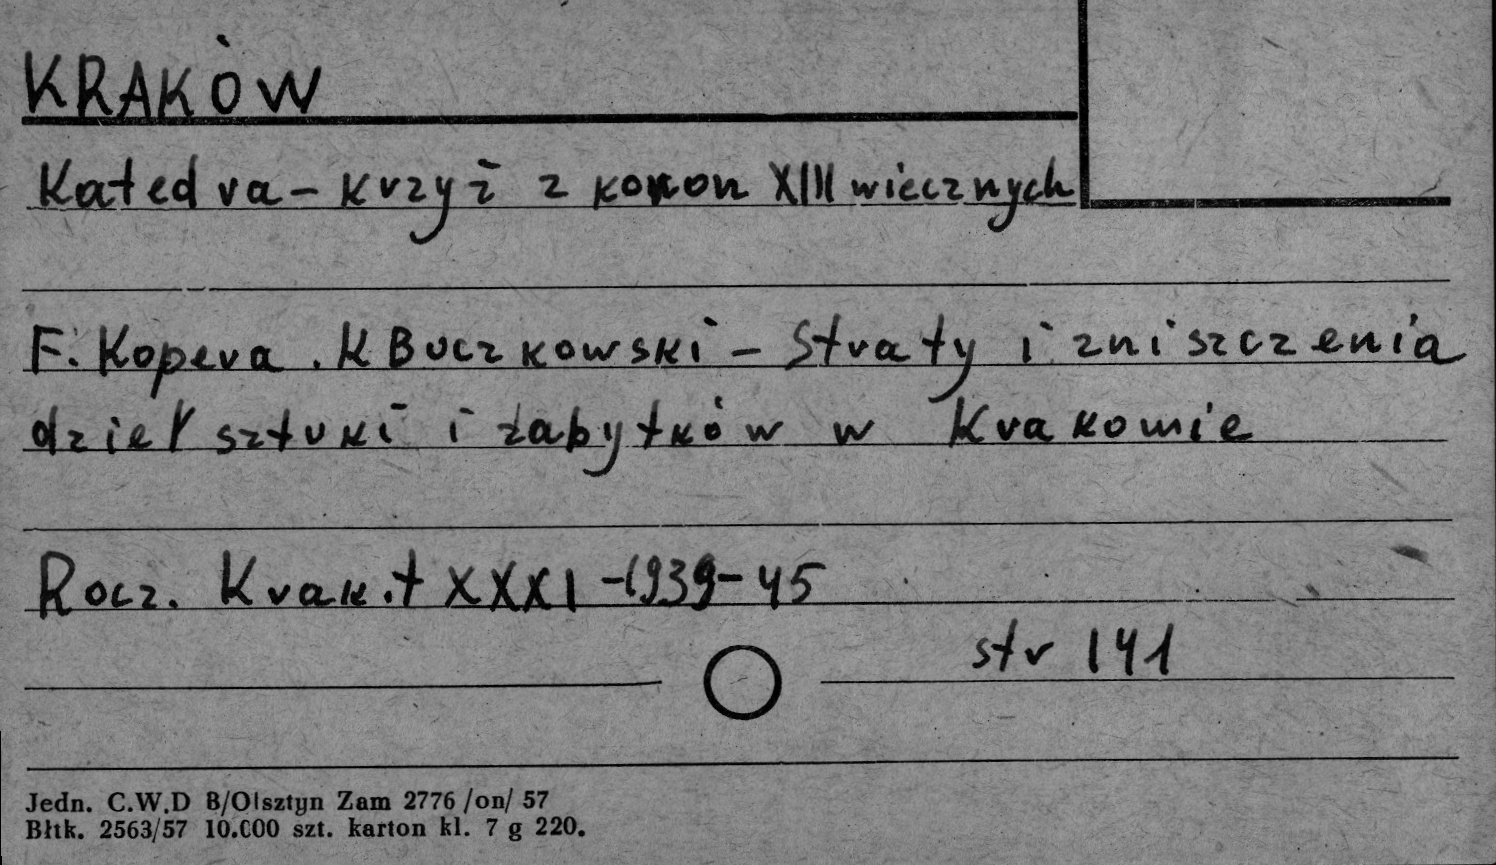 KRAKÓW
Katedra - krzyż z koron XIII wiecznych
F. Kopera . K Buczkowski - Straty i zniszczenia
dzieł sztuki i zabytków w Krakowie
Rocz. Krak. t XXXI - 1939-45
str 141
Jedn. C.W.D B/Olsztyn Zam 2776 /on/ 57
Błtk. 2563/57 10.000 szt. karton kl. 7 g 220.